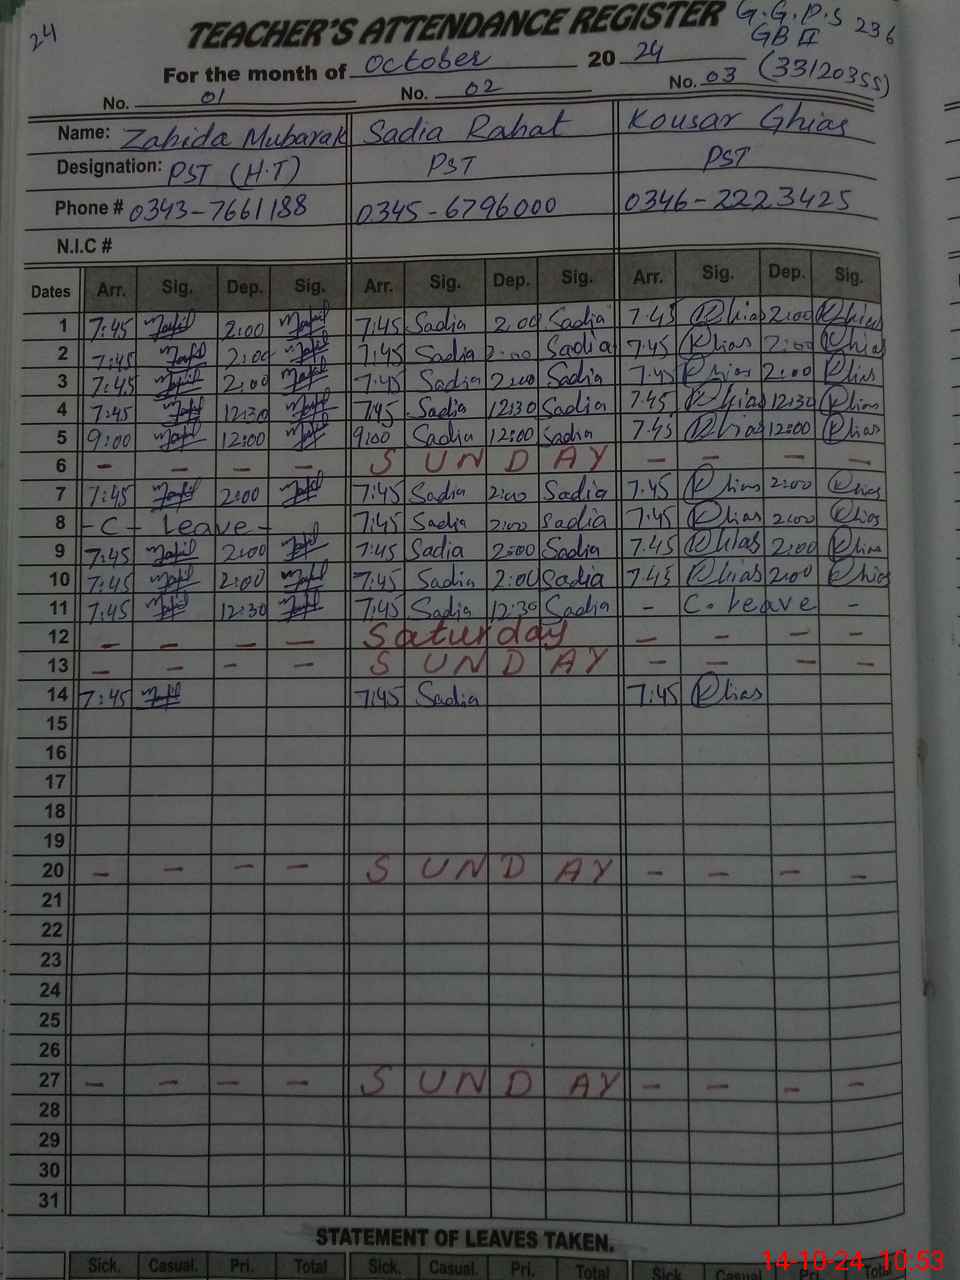 24
TEACHER'S ATTENDANCE REGISTER G.G.P.S 236
GB II
For the month of October 2024 (33120355)
No. 01 No. 02 No. 03
Name: Zahida Mubarak Sadia Rahat Kousar Ghias
Designation: PST (H.T) PST PST
Phone # 0343-7661188 0345-6796000 0346-2223425
N.I.C #
Dates Arr. Sig. Dep. Sig. Arr. Sig. Dep. Sig. Arr. Sig. Dep. Sig.
1 7:45 2:00 7:45 Sadia 2:00 Sadia 7:45 Khias 2:00 Khias
2 7:45 2:00 7:45 Sadia 2:00 Sadia 7:45 Khias 2:00 Khias
3 7:45 2:00 7:45 Sadia 2:00 Sadia 7:45 Khias 2:00 Khias
4 7:45 12:30 7:45 Sadia 12:30 Sadia 7:45 Khias 12:30 Khias
5 9:00 12:00 9:00 Sadia 12:00 Sadia 7:45 Khias 12:00 Khias
6 - - - - S U N D A Y - - - -
7 7:45 2:00 7:45 Sadia 2:00 Sadia 7:45 Khias 2:00 Khias
8 - C - Leave - 7:45 Sadia 2:00 Sadia 7:45 Khias 2:00 Khias
9 7:45 2:00 7:45 Sadia 2:00 Sadia 7:45 Khias 2:00 Khias
10 7:45 2:00 7:45 Sadia 2:00 Sadia 7:45 Khias 2:00 Khias
11 7:45 12:30 7:45 Sadia 12:30 Sadia - C. Leave -
12 - - - - Saturday - - - -
13 - - - - S U N D A Y - - - -
14 7:45 7:45 Sadia 7:45 Khias
15
16
17
18
19
20 - - - - S U N D A Y - - - -
21
22
23
24
25
26
27 - - - - S U N D A Y - - - -
28
29
30
31
STATEMENT OF LEAVES TAKEN.
Sick. Casual. Pri. Total Sick. Casual. Pri. Total Sick Casual. Pri. Total
14-10-24 10:53